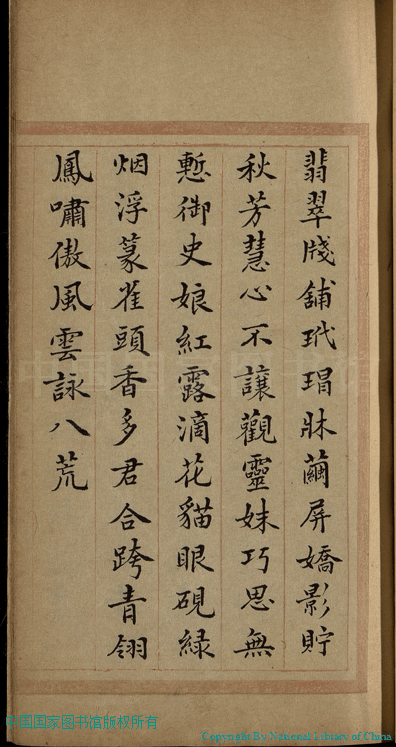 翡翠牋舖玳瑁牀蘭屏嬌影貯
秋芳慧心不讓觀靈妹巧思無
慙御史娘紅露滴花貓眼硯綠
烟浮篆雀頭香多君合跨青翎
鳳嘯傲風雲詠八荒
中国国家图书馆版权所有
Copyright By National Library of China